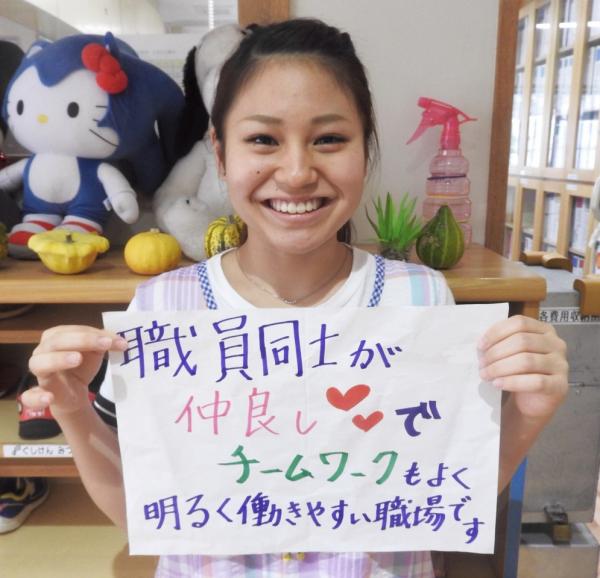 職員同士が
仲良しで
チームワークもよく
明るく働きやすい職場です
各費用収納
ぐしけん みつ